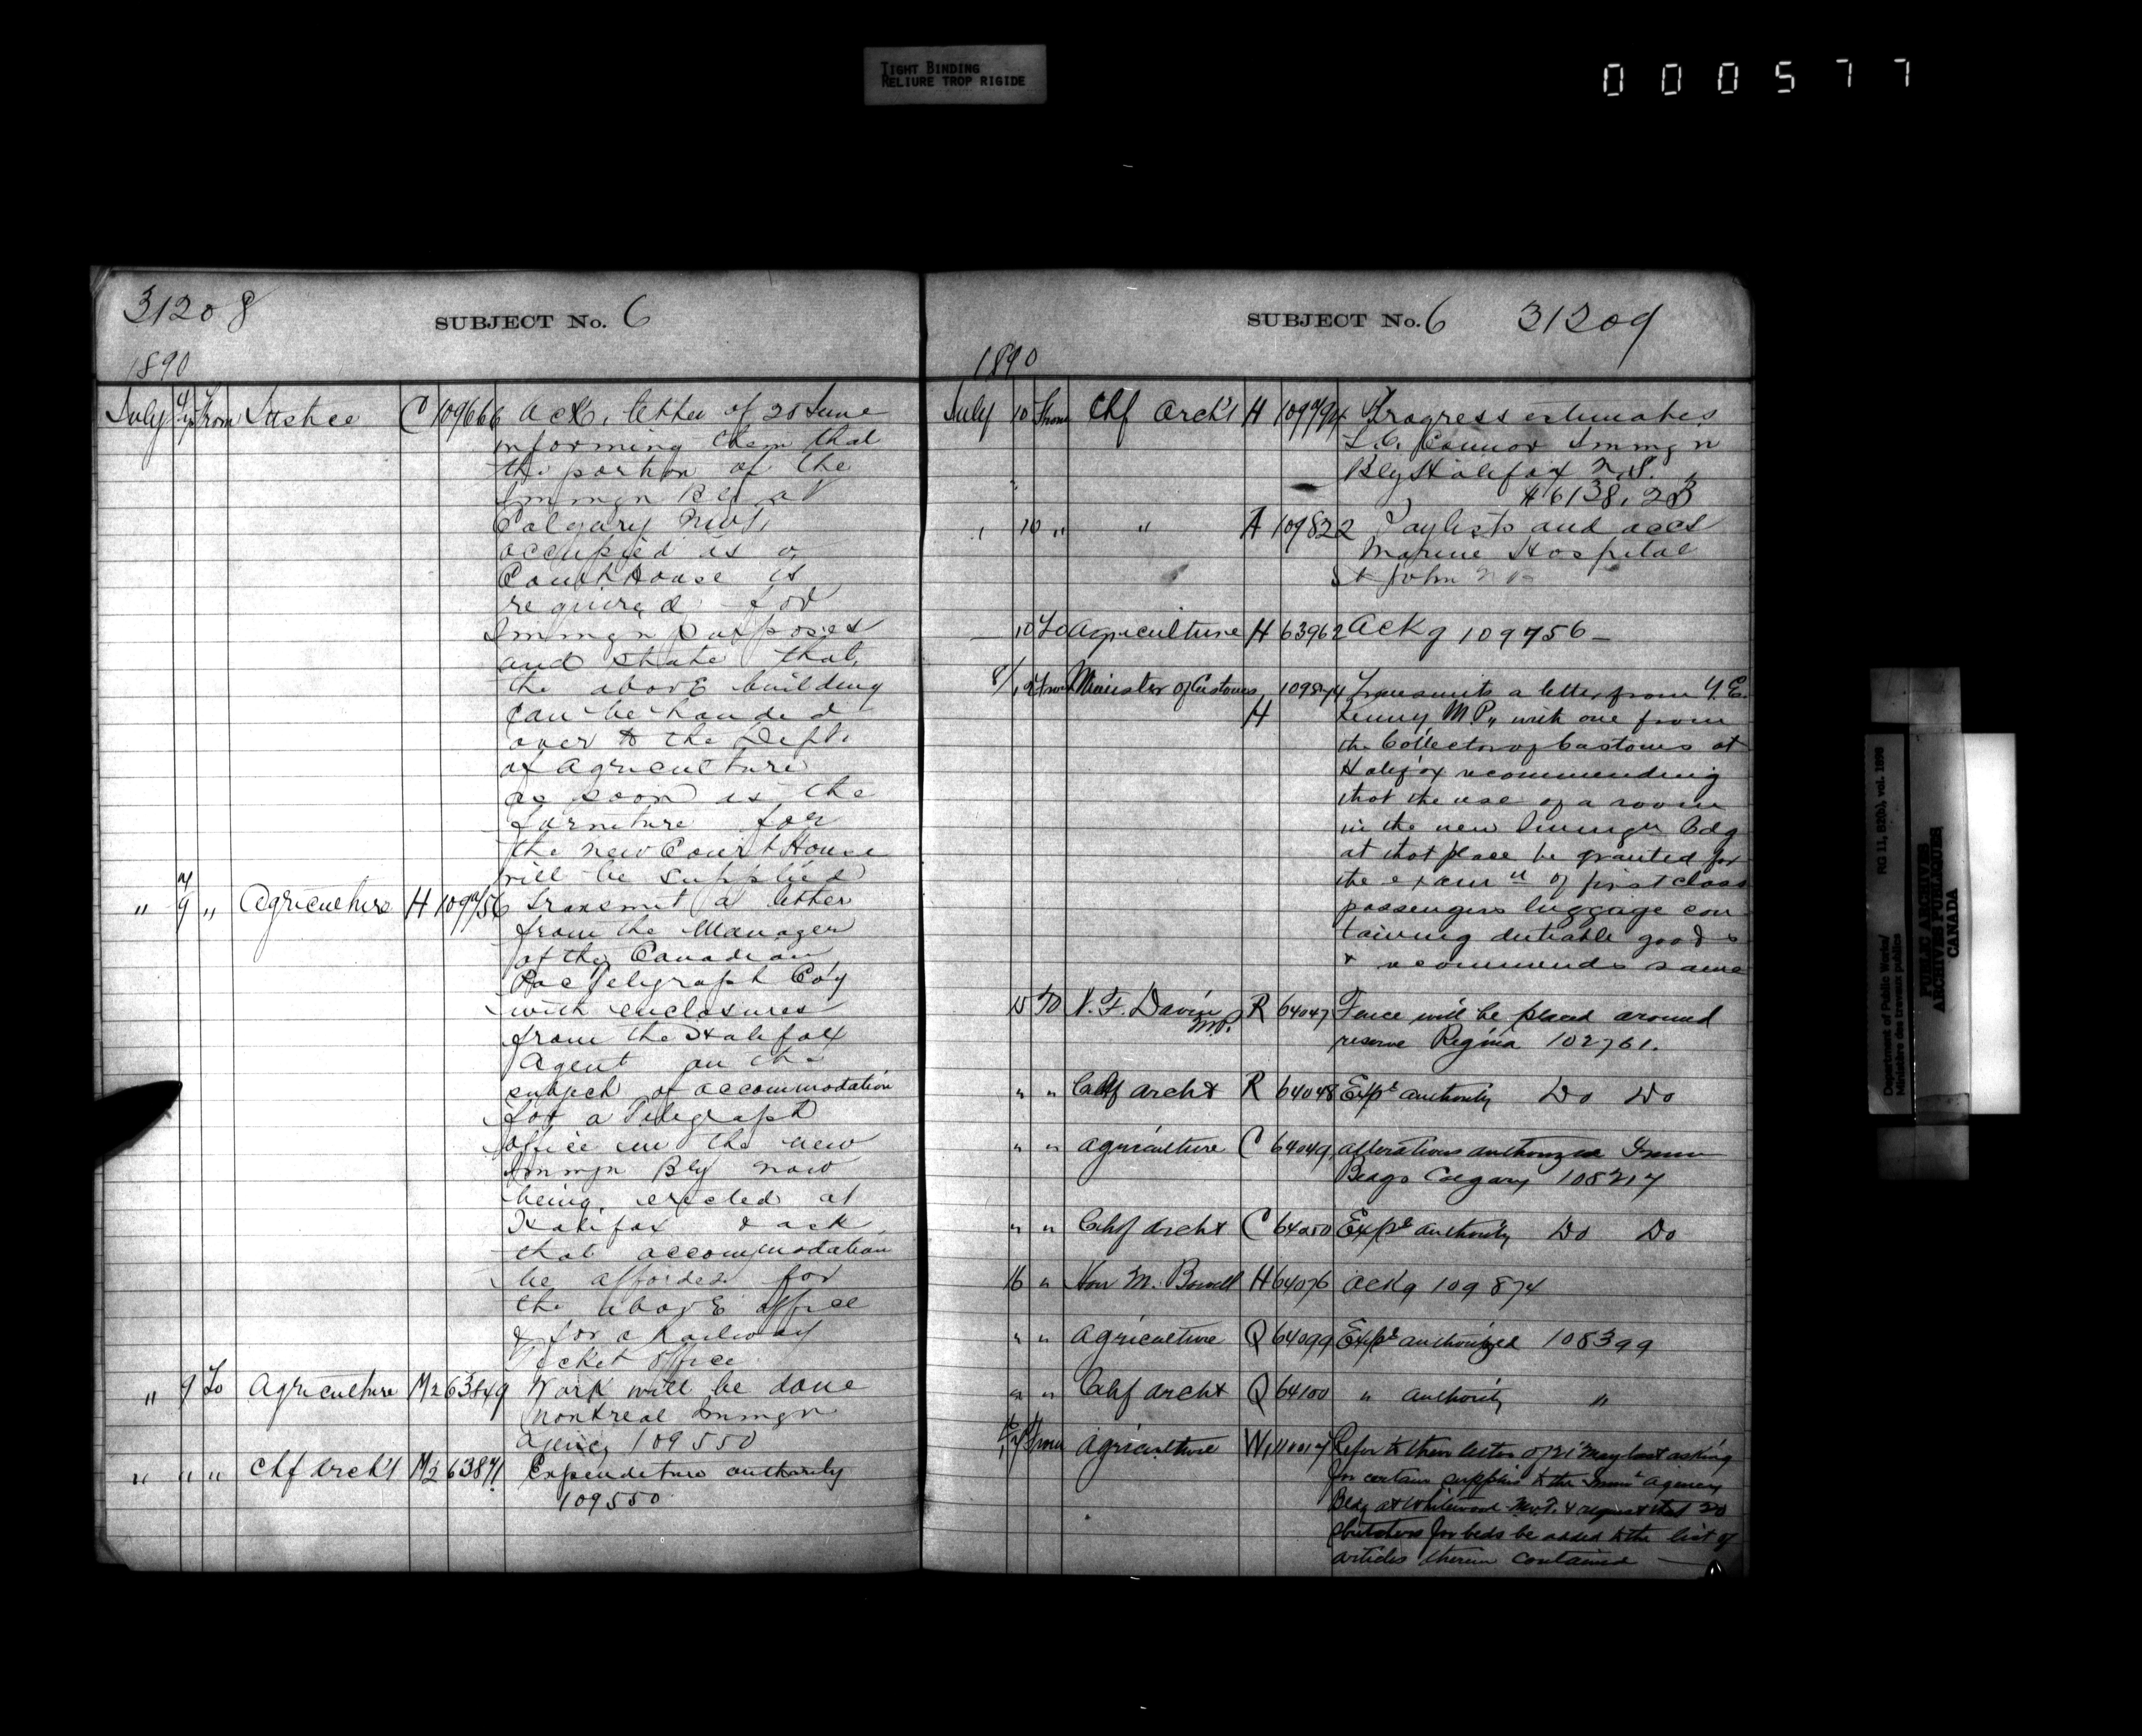 TIGHT BINDING
RELIURE TROP RIGIDE
000577
31208
SUBJECT No. 6
1890
July 4/7 From Justice C 109666 Ack. letter of 25 June
informing them that
the portion of the
Immgn Blg at
Calgary NWT,
occupied as a
Court House is
required for
Immgn purposes
and state that,
the above building
can be handed
over to the Dept.
of Agriculture
as soon as the
furniture for
the new Court House
will be supplied
" 7/9 " Agriculture H 109756 Transmit a letter
from the Manager
of the Canadian
Pac Telegraph Coy
with enclosures
from the Halifax
Agent on the
subject of accommodation
for a Telegraph
office in the new
Immgn Blg now
being erected at
Halifax & ask
that accommodation
be afforded for
the above office
& for a Railway
Ticket office
" 9 To Agriculture M2 63849 Work will be done
Montreal Immgn
Agency 109550
" " " Chf Arch't M2 63871 Expenditure authority
109550
SUBJECT No. 6 31209
1890
July 10 From Chf Arch't H 109794 Progress estimates
Connor Immgn
Blg Halifax N.S.
$6138.23
" 10 " " A 109822 Paylists and accts
Marine Hospital
St John N B
10 To Agriculture H 63962 Ackg 109756
8/12 From Minister of Customs, 109874 Transmits a letter from T. E.
H Kenny M.P., with one from
the Collector of Customs at
Halifax recommending
that the use of a room
in the new Immgn Bdg
at that place be granted for
the examn of first class
passengers luggage con
taining dutiable goods
& recommends same
15 To N. F. Davin R 64047 Fence will be placed around
MP. reserve Regina 102761.
" " Chf Archt R 64048 Expe authority Do Do
" " Agriculture C 64049 alterations authorized Immn
Bldgs Calgary 108217
" " Chf Archt C 64050 Expe authority Do Do
16 " Hon M. Bowell H 64076 Ackg 109874
" " Agriculture Q 64099 Expe authorized 108399
" " Chf Archt Q 64100 " authority "
16/17 From Agriculture W1 110017 Refer to their letter of 21 May last asking
for certain supplies to the Immn Agency
Bldg at Whitewood N.W.T. & request that 20
for beds be added to the list of
articles therein contained
Department of Public Works/
Ministère des travaux publics
RG 11, B2(b), vol. 1898
PUBLIC ARCHIVES
ARCHIVES PUBLIQUES
CANADA